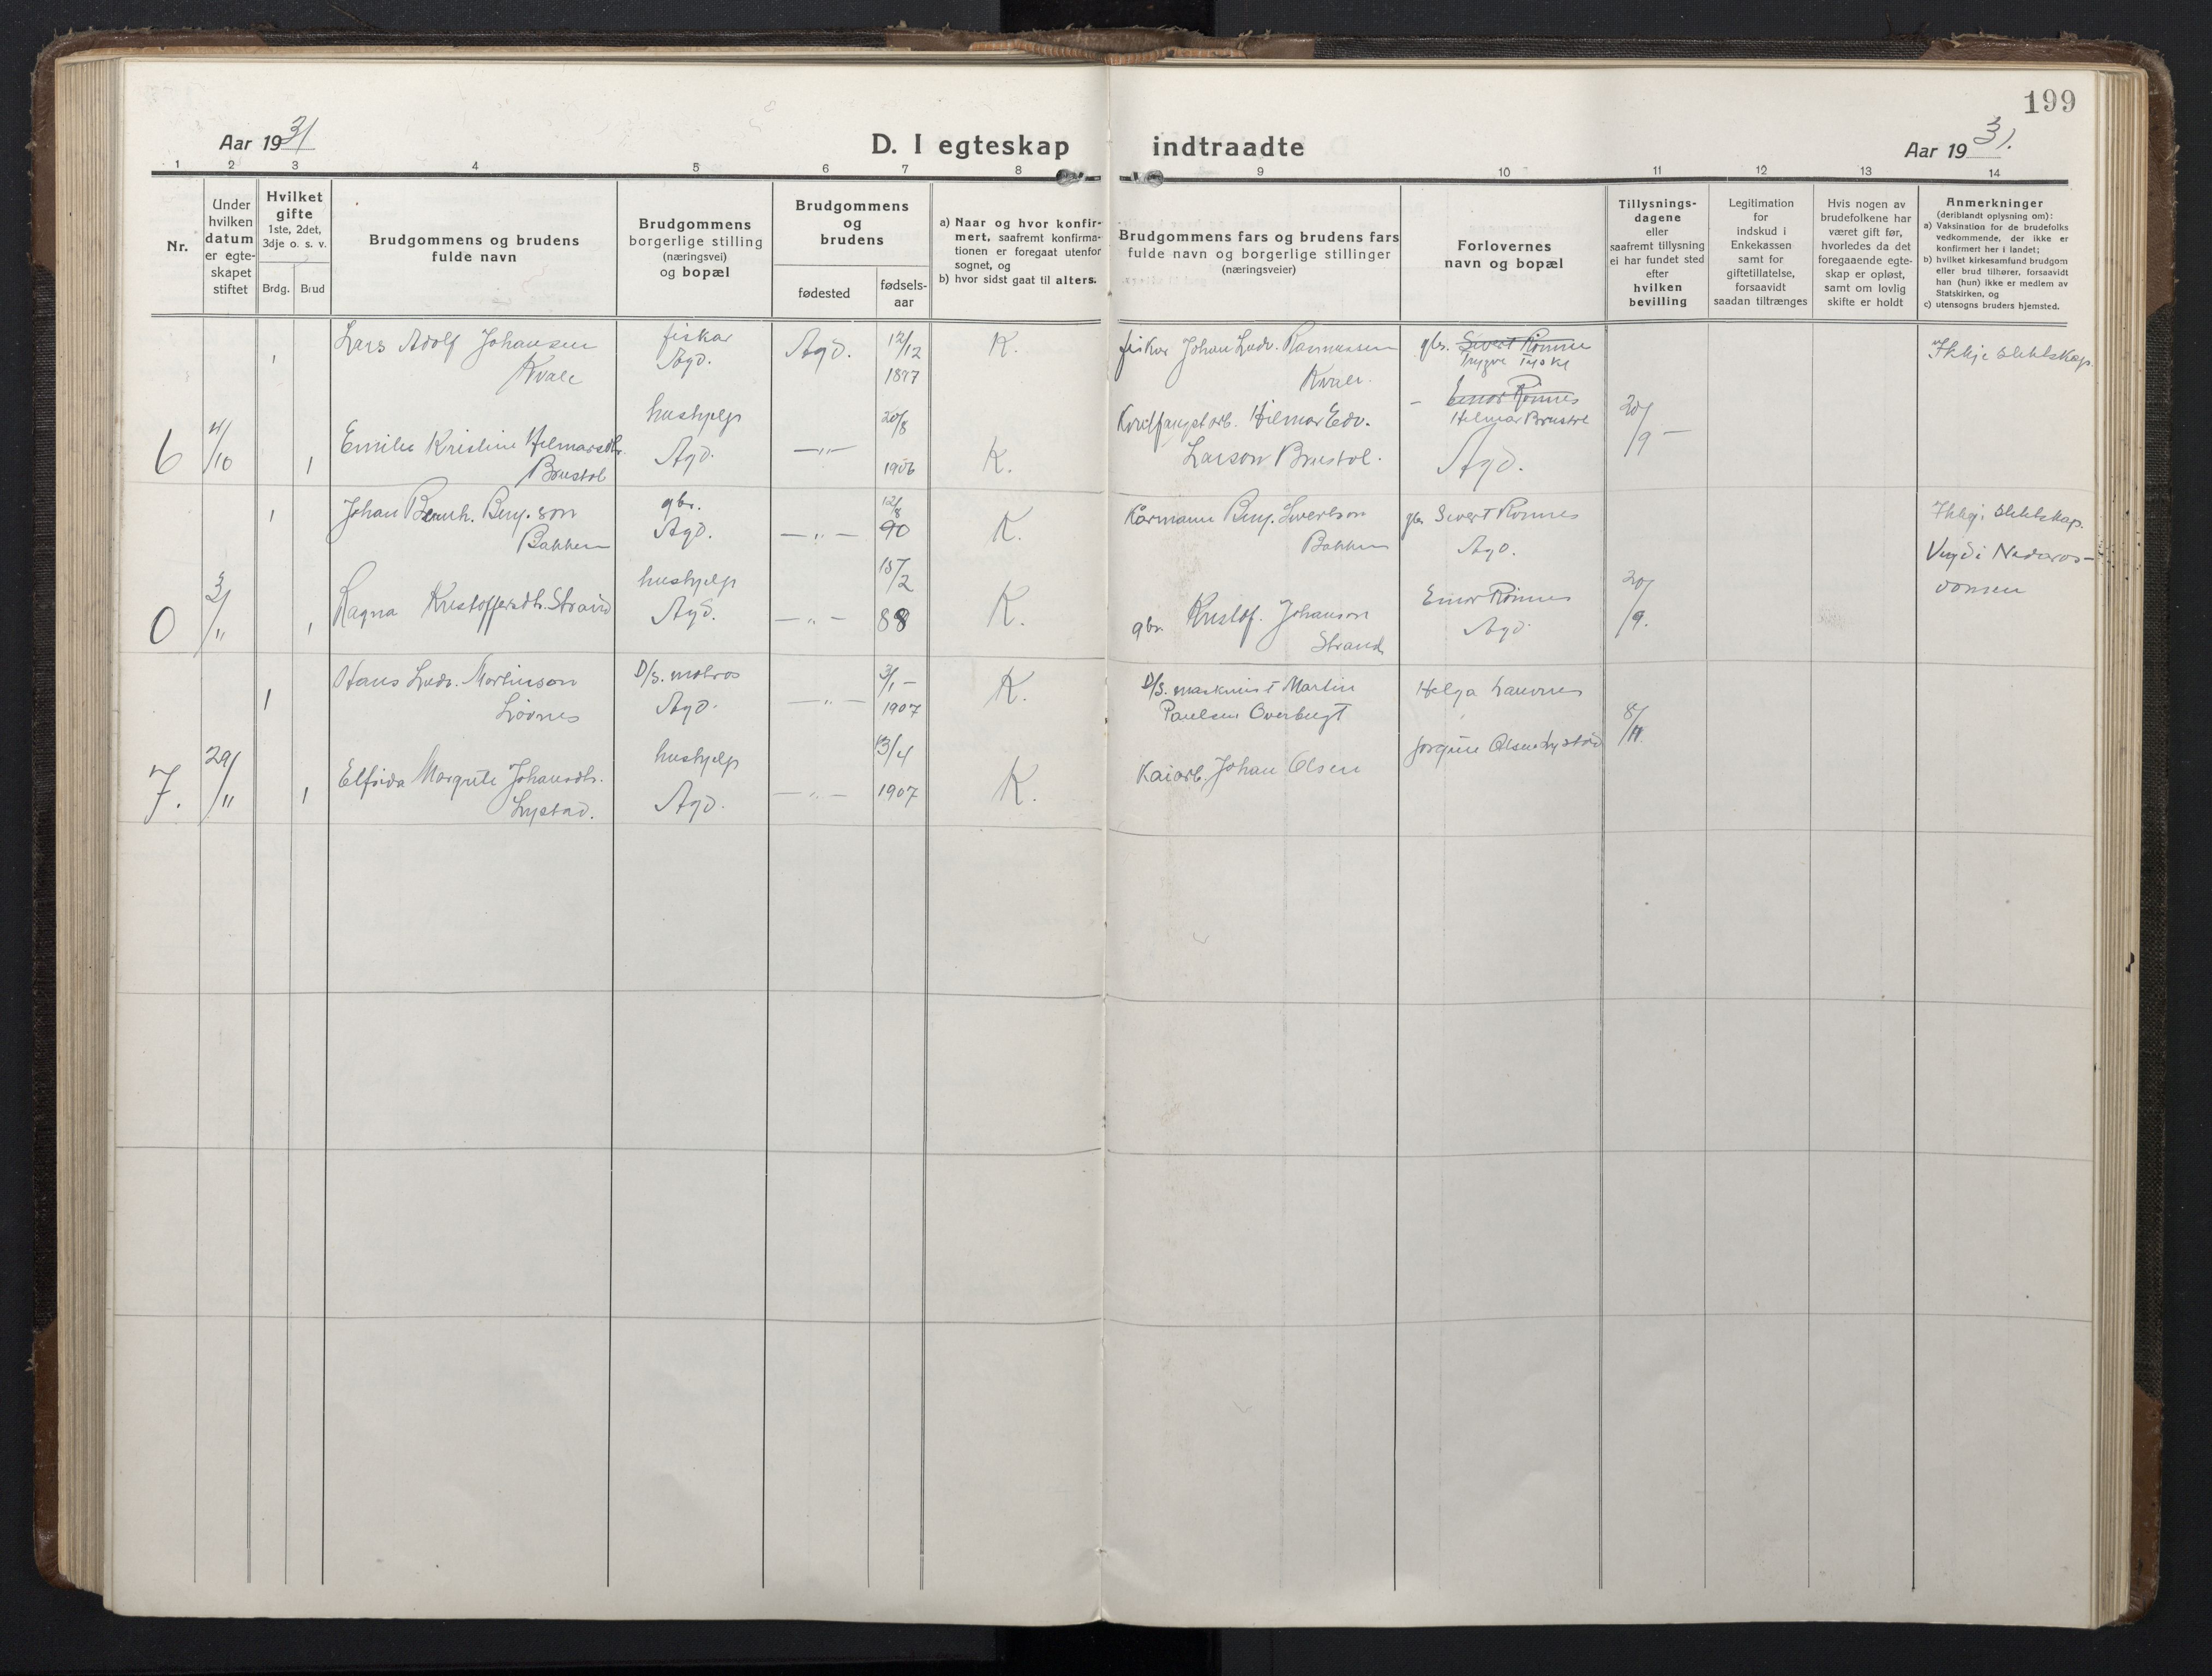 199
Aar 1931
D. I egteskap indtraadte
Aar 1931.
1 2 3 4 5 6 7 8 9 10 11 12 13 14
Nr.
Under
hvilken
datum
er egte-
skapet
stiftet
Hvilket
gifte
1ste, 2det,
3dje o. s. v.
Brdg. Brud
Brudgommens og brudens
fulde navn
Brudgommens
borgerlige stilling
(næringsvei)
og bopæl
Brudgommens
og
brudens
fødested
fødsels-
aar
a) Naar og hvor konfir-
mert, saafremt konfirma-
tionen er foregaat utenfor
sognet, og
b) hvor sidst gaat til alters.
Brudgommens fars og brudens fars
fulde navn og borgerlige stillinger
(næringsveier)
Forlovernes
navn og bopæl
Tillysnings-
dagene
eller
saafremt tillysning
ei har fundet sted
efter
hvilken
bevilling
Legitimation
for
indskud i
Enkekassen
samt for
giftetillatelse,
forsaavidt
saadan tiltrænges
Hvis nogen av
brudefolkene har
været gift før,
hvorledes da det
foregaaende egte-
skap er opløst,
samt om lovlig
skifte er holdt
Anmerkninger
(deriblandt oplysning om):
a) Vaksination for de brudefolks
vedkommende, der ikke er
konfirmert her i landet;
b) hvilket kirkesamfund brudgom
eller brud tilhører, forsaavidt
han (hun) ikke er medlem av
Statskirken, og
c) utensogns bruders hjemsted.
1
Lars Adolf Johansen
Kvale
fiskar
Agd.
Agd.
12/12
1897
K.
fiskar Johan Ludv. Rasmussen
Kvale.
gbr. Sivert Rönne
Trygve
Ikkje slektskap.
6
4/10
1
Emilie Kristine Hilmarsdtr.
Brustol
hushjelp
Agd.
—"—
20/8
1906
K.
Hilmar Edv.
Larson Brustol.
- Einar Rönnes
Hilmar
Agd.
20/9 —
1
Johan Bernh. Beny.son
Bakken
gbr.
Agd.
— " —
12/8
90
K.
Kårmann Beny. Sivertson
Bakken
gbr Sivert Ronnes
Agd.
Ikkje slektskap.
Vigd i Nidaros-
domen
0
3/11
1
Ragna Kristoffersdtr. Strand
hushjelp
Agd.
— " —
15/2
88
K.
gbr. Kristof. Johanson
Strand
Einar Ronnes
Agd.
20/9.
1
Hans Ludv. Martinson
Lövnes
D/S. matros
Agd.
— " —
3/1 -
1907
K.
D/S. maskinist Martin
Paulsen Overbugt
Helga
7.
29/11
1
Elfrida Margrete Johansdtr.
Lystad.
hushjelp
Agd.
— " —
13/4
1907
K.
Kaiarb. Johan Olsen
Jorgine Olsen Lystad
8/11